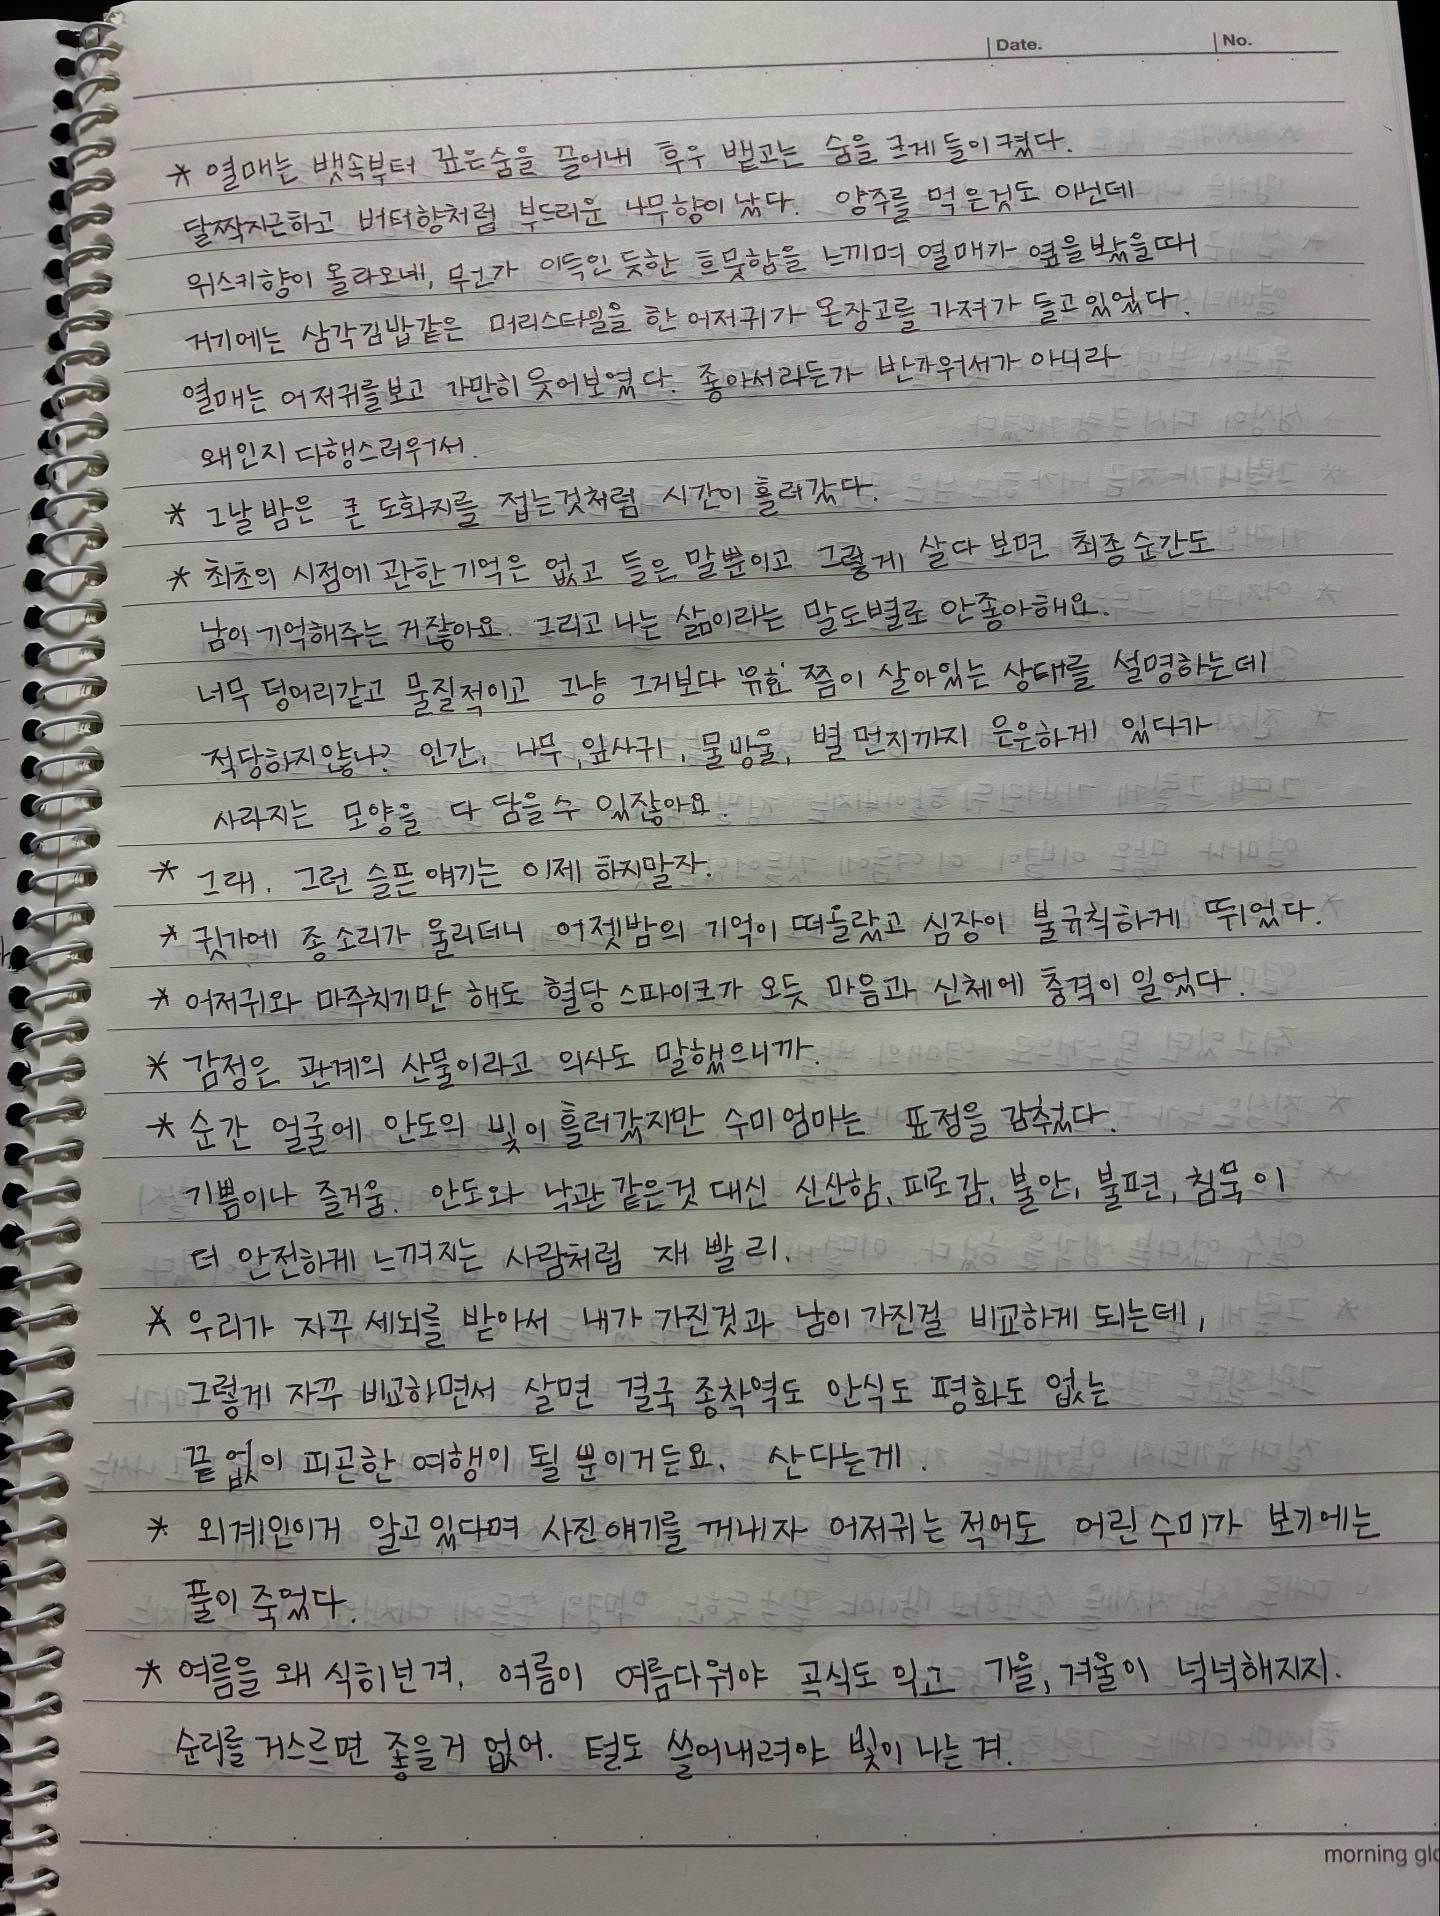 Date. No.
* 열매는 뱃속부터 깊은숨을 끌어내 후우 뱉고는 숨을 크게 들이켰다.
달짝지근하고 버터향처럼 부드러운 나무향이 났다. 양주를 먹은것도 아닌데
위스키향이 올라오네, 무언가 이득인 듯한 흐뭇함을 느끼며 열매가 옆을 봤을때
거기에는 삼각김밥같은 머리스타일을 한 어저귀가 온장고를 가져가 들고있었다.
열매는 어저귀를보고 가만히 웃어보였다. 좋아서라든가 반가워서가 아니라
왜인지 다행스러워서.
* 그날밤은 큰 도화지를 접는것처럼 시간이 흘러갔다.
* 최초의 시점에 관한기억은 없고 들은 말뿐이고 그렇게 살다보면 최종순간도
남이 기억해주는 거잖아요. 그리고 나는 삶이라는 말도별로 안좋아해요.
너무 덩어리같고 물질적이고 그냥 그거보다 '유효' 쯤이 살아있는 상태를 설명하는데
적당하지않나? 인간, 나무, 잎사귀, 물방울, 별 먼지까지 은은하게 있다가
사라지는 모양을 다 담을수 있잖아요.
* 그래. 그런 슬픈얘기는 이제 하지말자.
* 귓가에 종소리가 울리더니 어젯밤의 기억이 떠올랐고 심장이 불규칙하게 뛰었다.
* 어저귀와 마주치기만 해도 혈당 스파이크가 오듯 마음과 신체에 충격이 일었다.
* 감정은 관계의 산물이라고 의사도 말했으니까.
* 순간 얼굴에 안도의 빛이 흘러갔지만 수미엄마는 표정을 감췄다.
기쁨이나 즐거움. 안도와 낙관같은것 대신 신산함, 피로감, 불안, 불편, 침묵이
더 안전하게 느껴지는 사람처럼 재빨리.
* 우리가 자꾸 세뇌를 받아서 내가 가진것과 남이 가진걸 비교하게 되는데,
그렇게 자꾸 비교하면서 살면 결국 종착역도 안식도 평화도 없는
끝없이 피곤한 여행이 될 뿐이거든요. 산다는게.
* 외계인이거 알고있다며 사진얘기를 꺼내자 어저귀는 적어도 어린수미가 보기에는
풀이 죽었다.
* 여름을 왜 식히넌겨. 여름이 여름다워야 곡식도 익고 가을, 겨울이 넉넉해지지.
순리를 거스르면 좋을거 없어. 털도 쓸어내려야 빛이 나는겨.